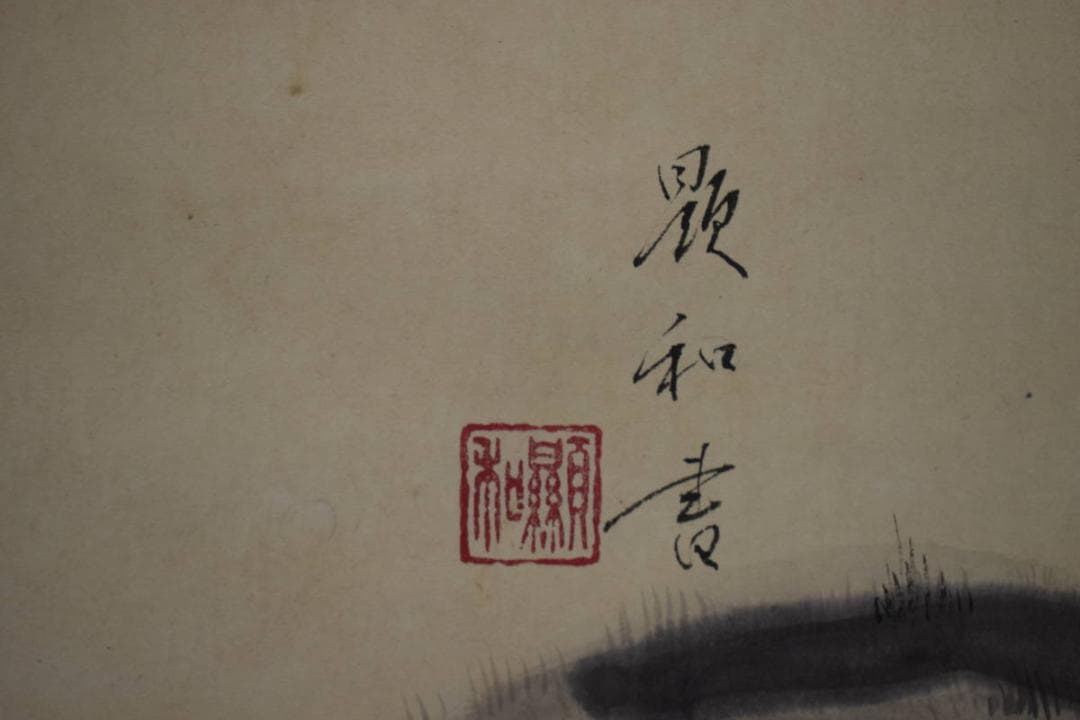 顕和書
顯和